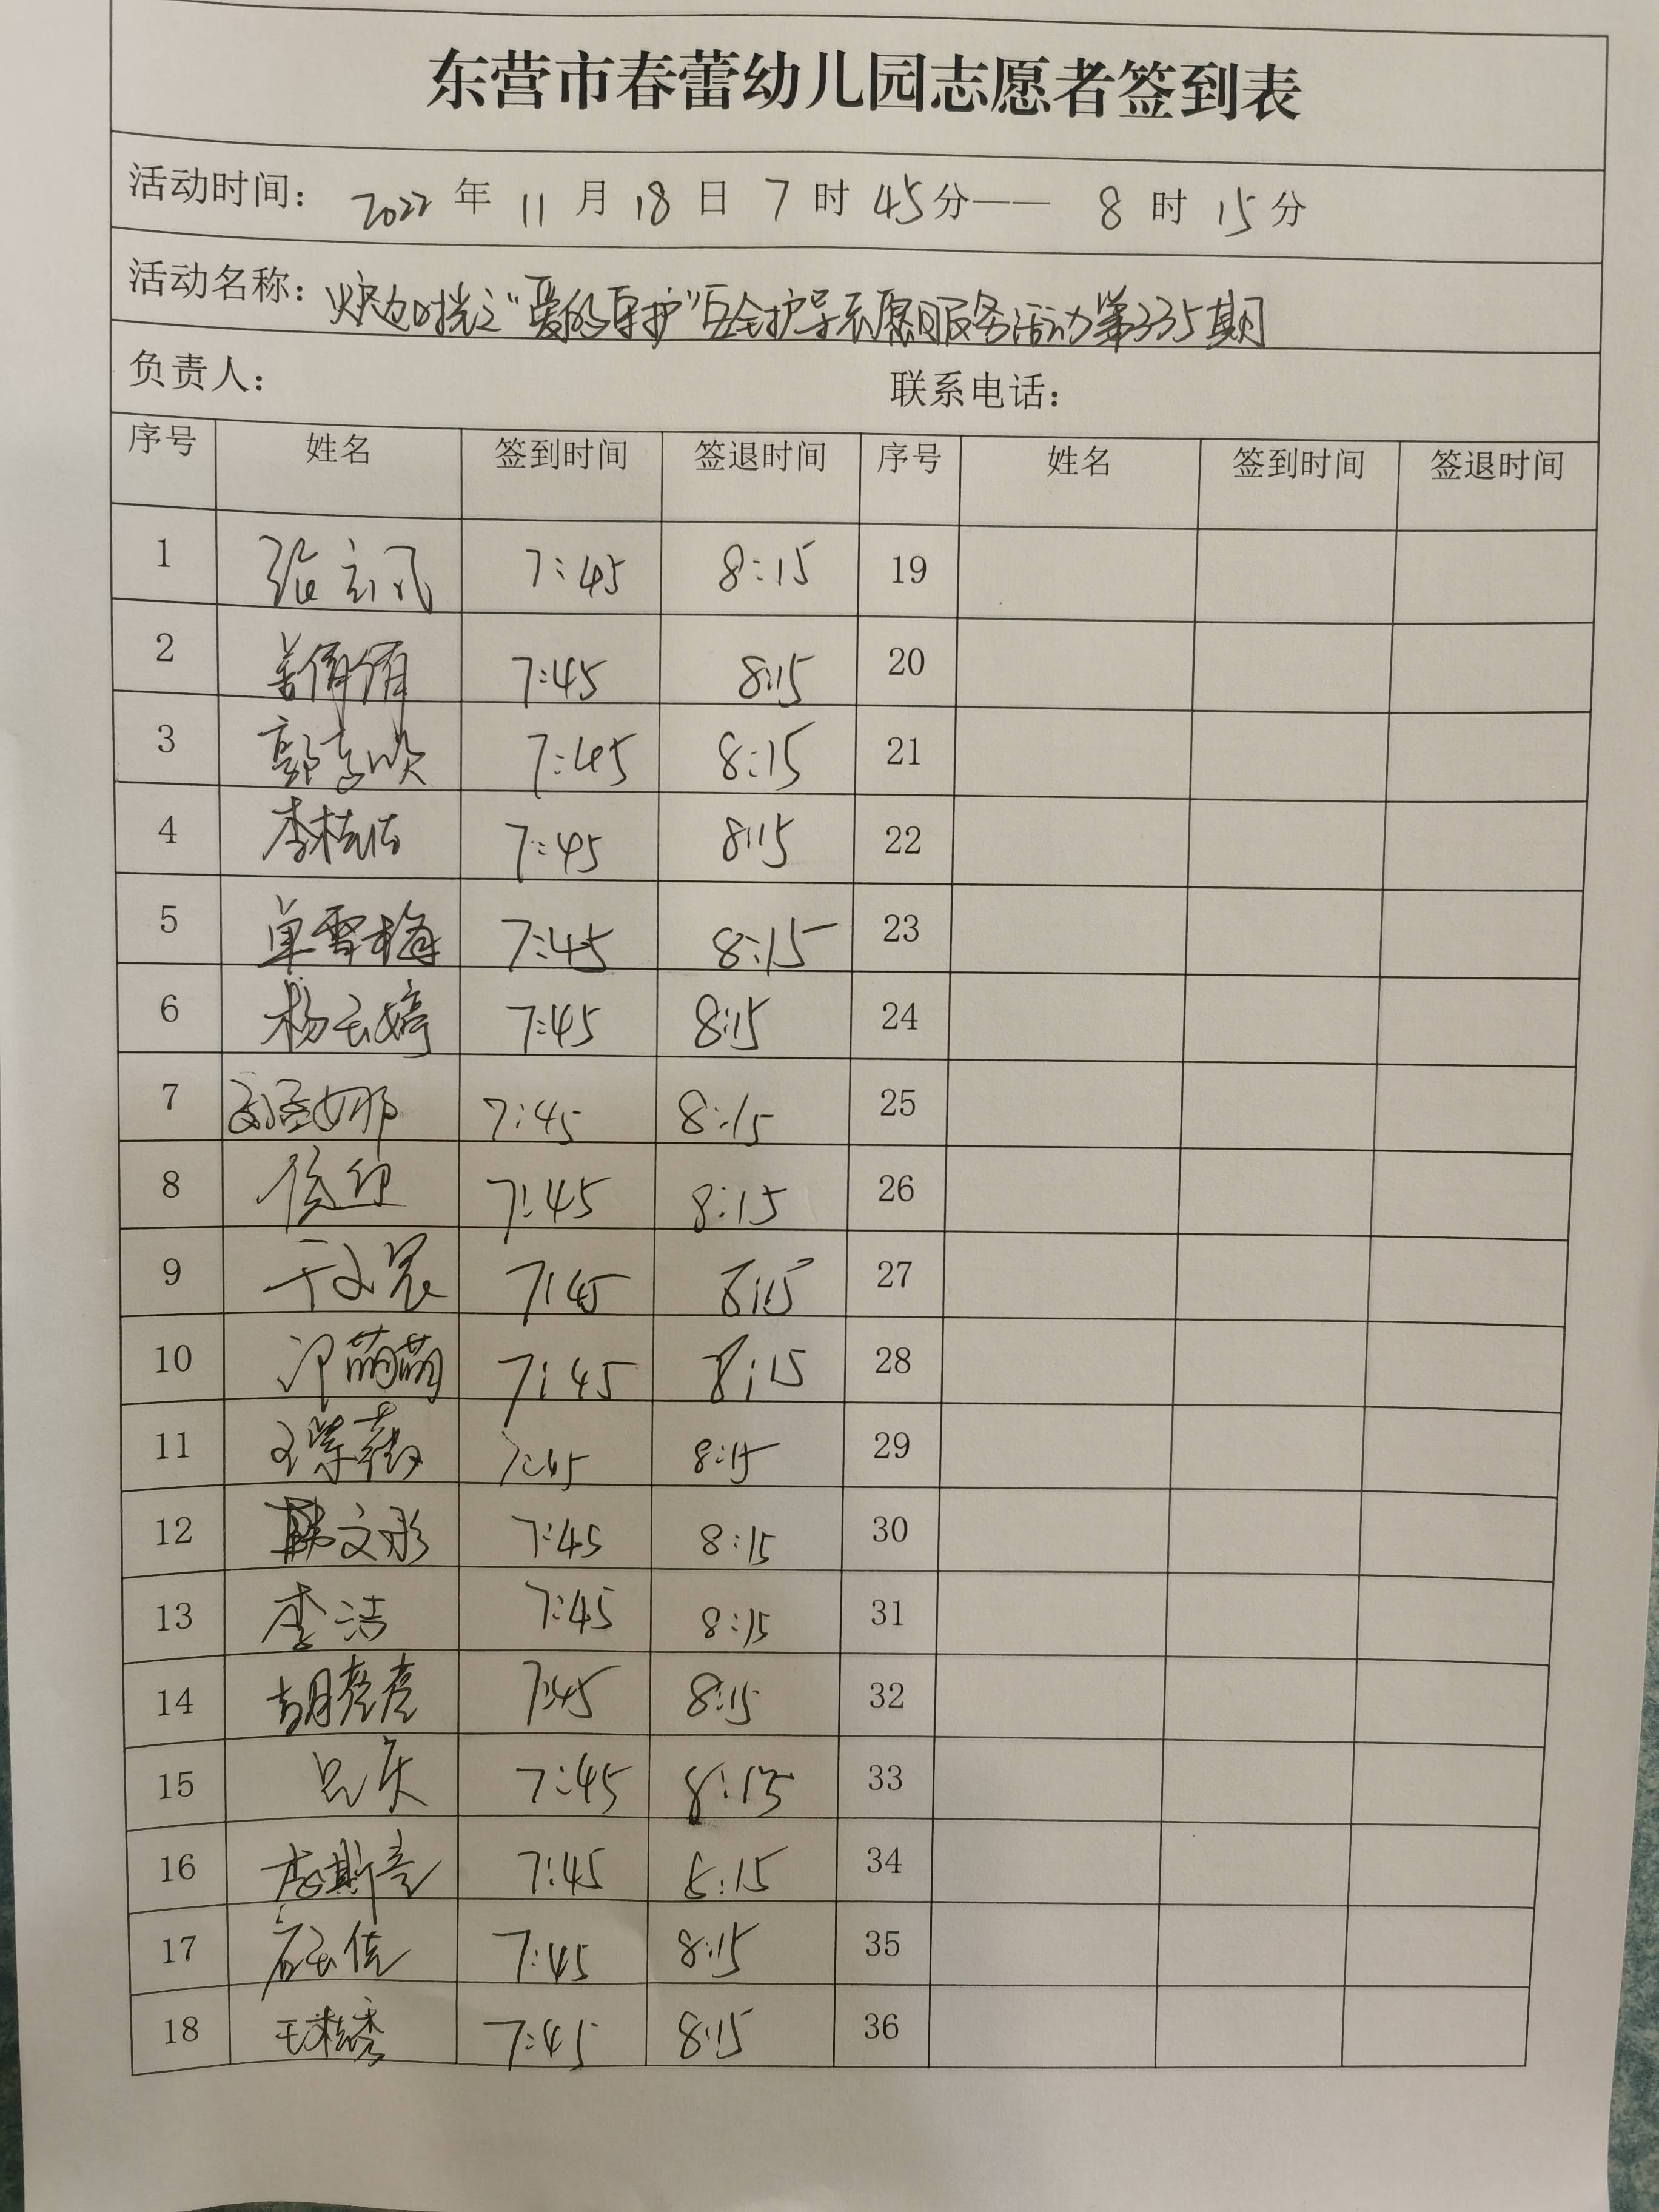 东营市春蕾幼儿园志愿者签到表
活动时间: 2022 年 11 月 18 日 7 时 45 分—— 8 时 15 分
活动名称: 之“爱的守护”安全护导志愿服务活动第335期
负责人: 联系电话:
序号 姓名 签到时间 签退时间 序号 姓名 签到时间 签退时间
1 7:45 8:15 19
2 7:45 8:15 20
3 郭 7:45 8:15 21
4 李桂 7:45 8:15 22
5 单雪梅 7:45 8:15 23
6 杨玉婷 7:45 8:15 24
7 7:45 8:15 25
8 7:45 8:15 26
9 于文 7:45 8:15 27
10 萌萌 7:45 8:15 28
11 王 7:45 8:15 29
12 韩文彤 7:45 8:15 30
13 李洁 7:45 8:15 31
14 胡彦彦 7:45 8:15 32
15 7:45 8:15 33
16 7:45 8:15 34
17 7:45 8:15 35
18 王桂秀 7:45 8:15 36